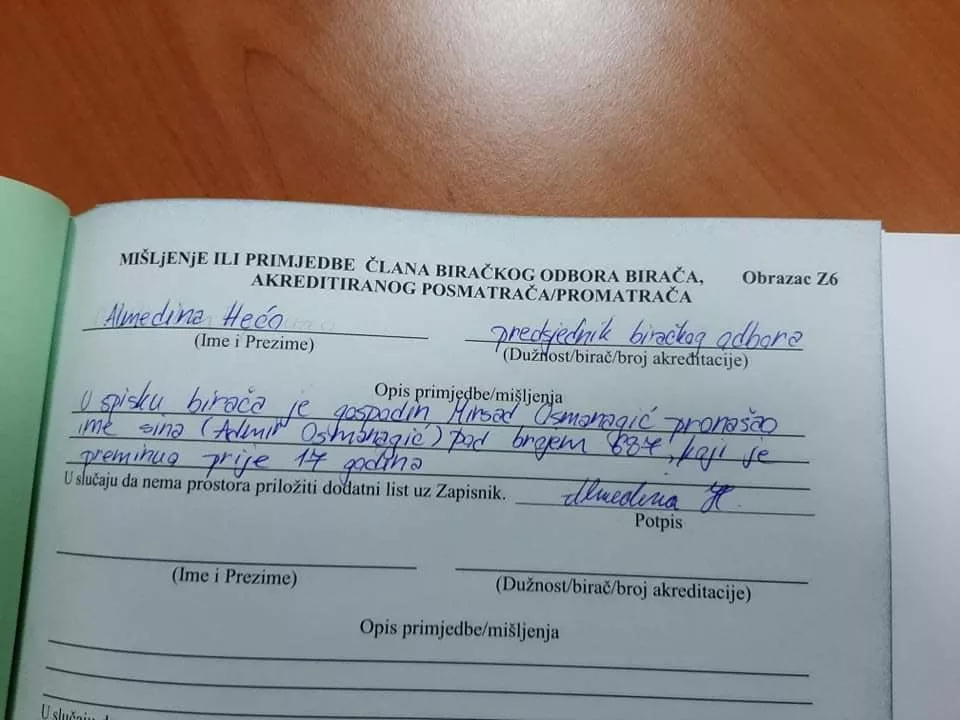 MIŠLjENjE ILI PRIMJEDBE ČLANA BIRAČKOG ODBORA BIRAČA, Obrazac Z6
AKREDITIRANOG POSMATRAČA/PROMATRAČA
Almedina Hećo predsjednik biračkog odbora
(Ime i Prezime) (Dužnost/birač/broj akreditacije)
Opis primjedbe/mišljenja
U spisku birača je gospodin Mirsad Osmanagić pronašao
ime sina (Admir Osmanagić) pod brojem 887, koji je
preminuo prije 17 godina
U slučaju da nema prostora priložiti dodatni list uz Zapisnik. Almedina H.
Potpis
(Ime i Prezime) (Dužnost/birač/broj akreditacije)
Opis primjedbe/mišljenja
U slučaju da